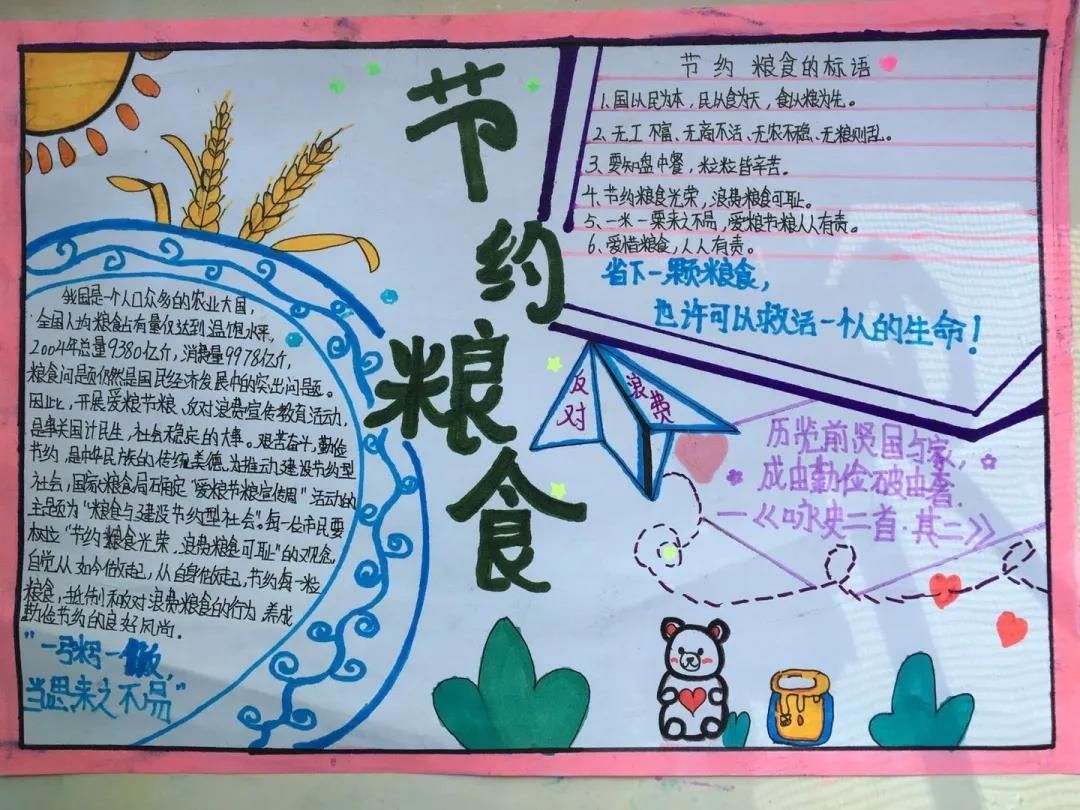 节约粮食
节约 粮食的标语
1、国以民为本，民以食为天，食以粮为生。
2、无工不富、无商不活、无农不稳、无粮则乱。
3、要知盘中餐，粒粒皆辛苦。
4、节约粮食光荣，浪费粮食可耻。
5、一米一粟来之不易，爱粮节粮人人有责。
6、爱惜粮食，人人有责。
省下一颗粮食，
也许可以救活一个人的生命！
反对
浪费
历览前贤国与家，
成由勤俭破由奢.
—《咏史二首·其二》
我国是一个人口众多的农业大国，
全国人均粮食占有量仅达到温饱水平，
2004年总量9380亿斤，消费量9978亿斤，
粮食问题仍然是国民经济发展中的突出问题。
因此，开展爱粮节粮、反对浪费宣传教育活动，
是事关国计民生，社会稳定的大事。艰苦奋斗，勤俭
节约，是中华民族的传统美德。为推动建设节约型
社会，国家粮食局确定“爱粮节粮宣传周”活动的
主题为“粮食与建设节约型社会”。每一位市民要
树立“节约粮食光荣，浪费粮食可耻”的观念，
自觉从如今做起，从自身做起，节约每一粒
粮食，抵制和反对浪费粮食的行为 养成
勤俭节约的良好风尚.
“一粥一饭，
当思来之不易”